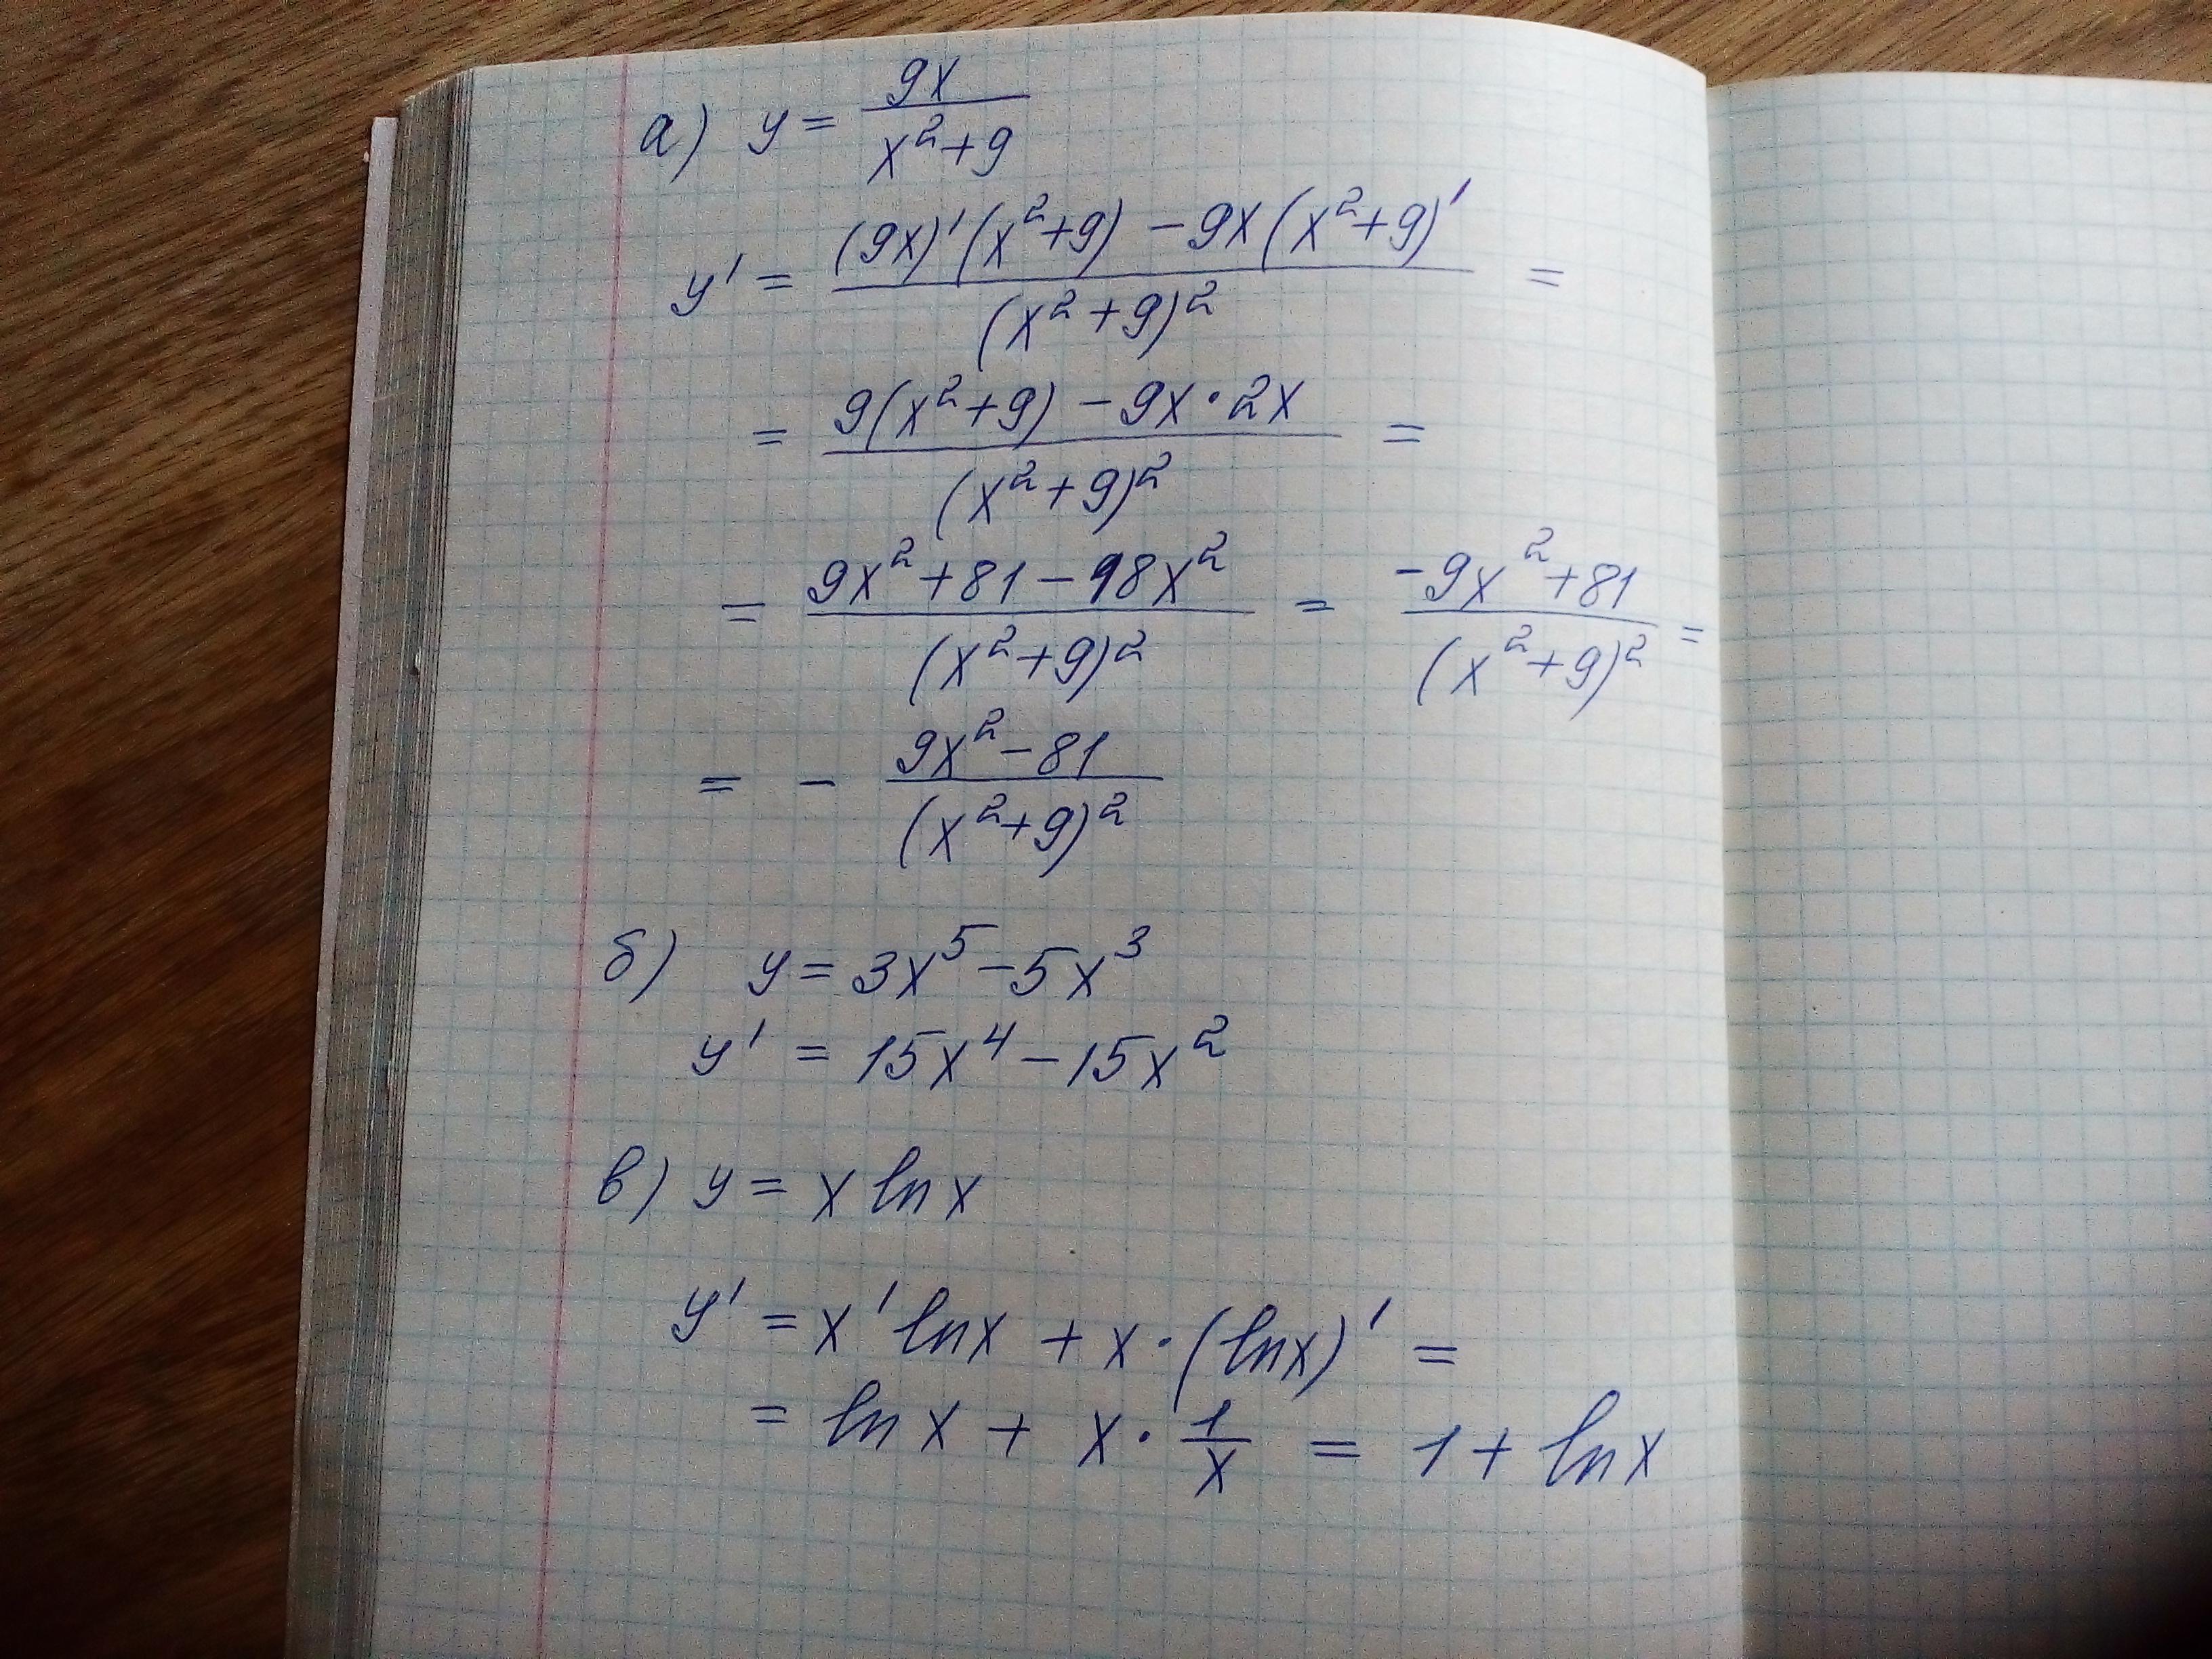 а) y = 9x / (x² + 9)
y' = ((9x)'(x² + 9) - 9x(x² + 9)') / (x² + 9)² =
= (9(x² + 9) - 9x · 2x) / (x² + 9)² =
= (9x² + 81 - 18x²) / (x² + 9)² = (-9x² + 81) / (x² + 9)² =
= - (9x² - 81) / (x² + 9)²
б) y = 3x⁵ - 5x³
y' = 15x⁴ - 15x²
в) y = x ln x
y' = x' ln x + x · (ln x)' =
= ln x + x · 1/x = 1 + ln x